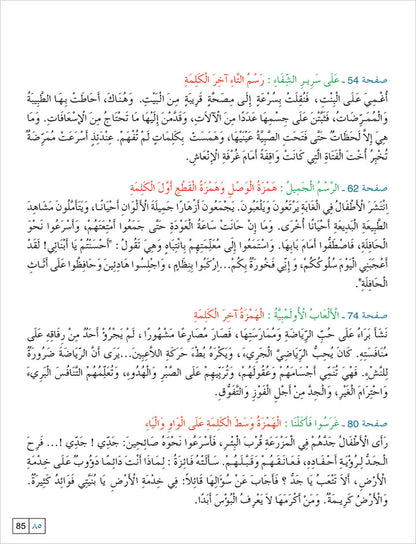 صفحة 54 ـ عَلَى سَرِيرِ الشِّفَاءِ : رَسْمُ التَّاءِ آخِرَ الْكَلِمَةِ
أُغْمِيَ عَلَى الْبِنْتِ، فَنُقِلَتْ بِسُرْعَةٍ إِلَى مِصَحَّةٍ قَرِيبَةٍ مِنَ الْبَيْتِ. وَهُنَاكَ، أَحَاطَتْ بِهَا الطَّبِيبَةُ
وَالْمُمَرِّضَاتُ، فَثَبَّتْنَ عَلَى جِسْمِهَا عَدَدًا مِنَ الْآلَاتِ، وَقَدَّمْنَ إِلَيْهَا مَا تَحْتَاجُ مِنَ الْإِسْعَافَاتِ. وَمَا
هِيَ إِلَّا لَحَظَاتٌ حَتَّى فَتَحَتِ الصَّبِيَّةُ عَيْنَيْهَا، وَهَمَسَتْ بِكَلِمَاتٍ لَمْ تُفْهَمْ. عِنْدَئِذٍ أَسْرَعَتْ مُمَرِّضَةٌ
تُخْبِرُ أُخْتَ الْفَتَاةِ الَّتِي كَانَتْ وَاقِفَةً أَمَامَ غُرْفَةِ الْإِنْعَاشِ.
صفحة 62 ـ الرَّسْمُ الْجَمِيلُ : هَمْزَةُ الْوَصْلِ وَهَمْزَةُ الْقَطْعِ أَوَّلَ الْكَلِمَةِ
اِنْتَشَرَ الْأَطْفَالُ فِي الْغَابَةِ يَرْتَعُونَ وَيَلْعَبُونَ. يَجْمَعُونَ أَزْهَارًا جَمِيلَةَ الْأَلْوَانِ أَحْيَانًا، وَيَتَأَمَّلُونَ مَشَاهِدَ
الطَّبِيعَةِ الْبَدِيعَةِ أَحْيَانًا أُخْرَى. وَمَا إِنْ حَانَتْ سَاعَةُ الْعَوْدَةِ حَتَّى جَمَعُوا أَمْتِعَتَهُمْ، وَأَسْرَعُوا نَحْوَ
الْحَافِلَةِ، فَاصْطَفُّوا أَمَامَ بَابِهَا. وَاسْتَمَعُوا إِلَى مُعَلِّمَتِهِمْ بِانْتِبَاهٍ وَهِيَ تَقُولُ : "أَحْسَنْتُمْ يَا أَبْنَائِي! لَقَدْ
أَعْجَبَنِي الْيَوْمَ سُلُوكُكُمْ، وَإِنِّي فَخُورَةٌ بِكُمْ...اِرْكَبُوا بِنِظَامٍ، وَاجْلِسُوا هَادِئِينَ وَحَافِظُوا عَلَى أَثَاثِ
الْحَافِلَةِ".
صفحة 74 ـ الْأَلْعَابُ الْأُولِمْبِيَّةُ : الْهَمْزَةُ آخِرَ الْكَلِمَةِ
نَشَأَ بَرَاءٌ عَلَى حُبِّ الرِّيَاضَةِ وَمُمَارَسَتِهَا، فَصَارَ مُصَارِعًا مَشْهُورًا، لَمْ يَجْرُؤْ أَحَدٌ مِنْ رِفَاقِهِ عَلَى
مُنَافَسَتِهِ. كَانَ يُحِبُّ الرِّيَاضِيَّ الْجَرِيءَ، وَيَكْرَهُ بُطْءَ حَرَكَةِ اللَّاعِبِينَ...يَرَى أَنَّ الرِّيَاضَةَ ضَرُورَةٌ
لِلنَّشْءِ. فَهِيَ تُنَمِّي أَجْسَامَهُمْ وَعُقُولَهُمْ، وَتُرَبِّيهِمْ عَلَى الصَّبْرِ وَالْهُدُوءِ، وَتُعَلِّمُهُمُ التَّنَافُسَ الْبَرِيءَ
وَاحْتِرَامَ الْغَيْرِ، وَالْجِدَّ مِنْ أَجْلِ الْفَوْزِ وَالتَّفَوُّقِ.
صفحة 80 ـ غَرَسُوا فَأَكَلْنَا : الْهَمْزَةُ وَسَطَ الْكَلِمَةِ عَلَى الْوَاوِ وَالْيَاءِ
رَأَى الْأَطْفَالُ جَدَّهُمْ فِي الْمَزْرَعَةِ قُرْبَ الْبِئْرِ، فَأَسْرَعُوا نَحْوَهُ صَائِحِينَ: جَدِّي ! جَدِّي !... فَرِحَ
الْجَدُّ لِرُؤْيَةِ أَحْفَادِهِ، فَعَانَقَهُمْ وَقَبَّلَهُمْ. سَأَلَتْهُ فَائِزَةُ : لِمَاذَا أَنْتَ دَائِمًا دَؤُوبٌ عَلَى خِدْمَةِ
الْأَرْضِ، أَلَا تَتْعَبُ يَا جَدِّ ؟ فَأَجَابَ عَنْ سُؤَالِهَا قَائِلًا: فِي خِدْمَةِ الْأَرْضِ يَا بُنَيَّتِي فَوَائِدُ كَثِيرَةٌ.
وَالْأَرْضُ كَرِيمَةٌ. وَمَنْ أَكْرَمَهَا لَا يَعْرِفُ الْبُؤْسَ أَبَدًا.
85 ٨٥